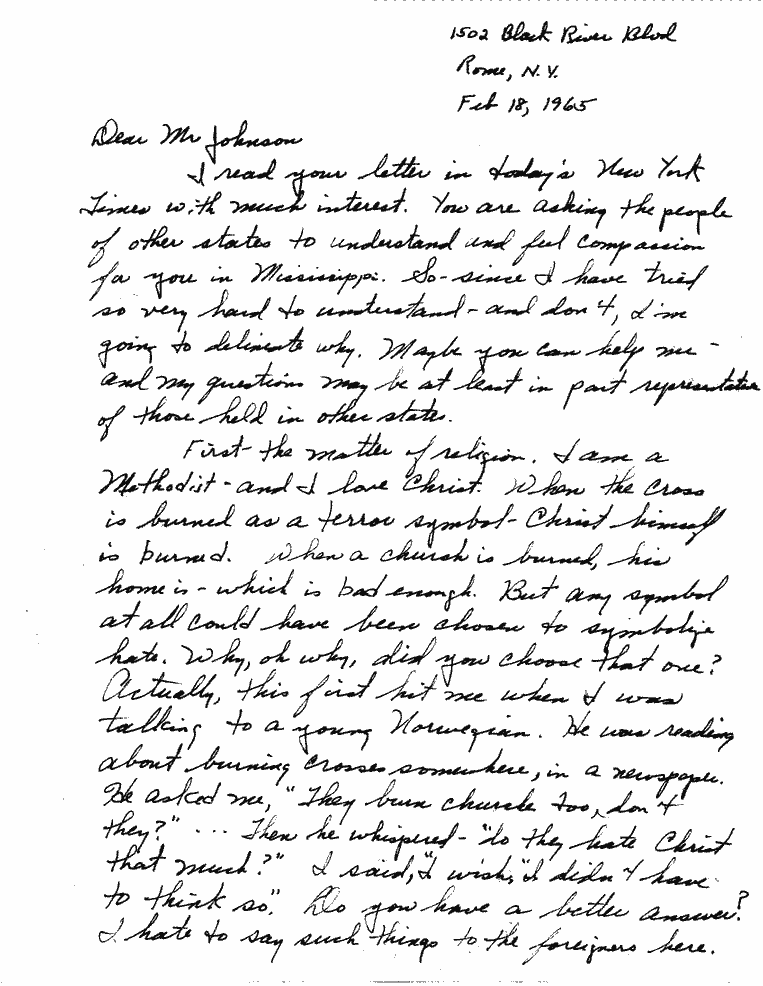 1502 Black River Blvd
Rome, N.Y.
Feb 18, 1965
Dear Mr Johnson
I read your letter in today's New York
Times with much interest. You are asking the people
of other states to understand and feel compassion
for you in Mississippi. So - since I have tried
so very hard to understand - and don't, I'm
going to delineate why. Maybe you can help me -
and my questions may be at least in part representative
of those held in other states.
First - the matter of religion. I am a
Methodist - and I love Christ. When the cross
is burned as a terror symbol - Christ himself
is burned. When a church is burned, his
home is - which is bad enough. But any symbol
at all could have been chosen to symbolize
hate. Why, oh why, did you choose that one?
Actually, this first hit me when I was
talking to a young Norwegian. He was reading
about burning crosses somewhere, in a newspaper.
He asked me, "They burn churche too, don't
they?" ... Then he whispered - "do they hate Christ
that much?" I said, "I wish," "I didn't have
to think so". Do you have a better answer?
I hate to say such things to the foreigners here.